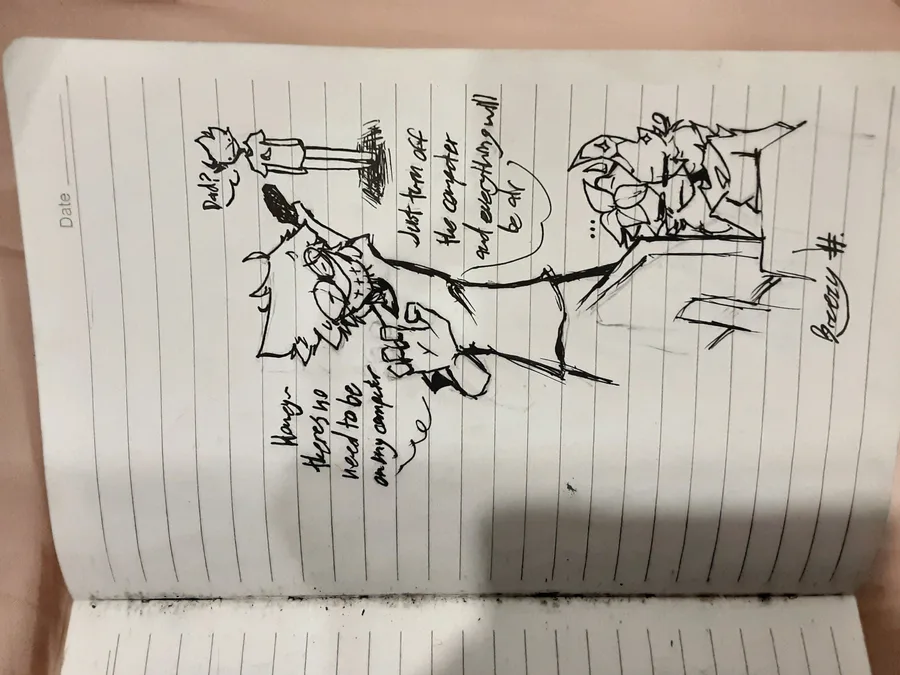 Date
Dad?
Honey~
theres no
need to be
on my computer
Just turn off
the computer
and everything will
be alr
...
Breezy #.